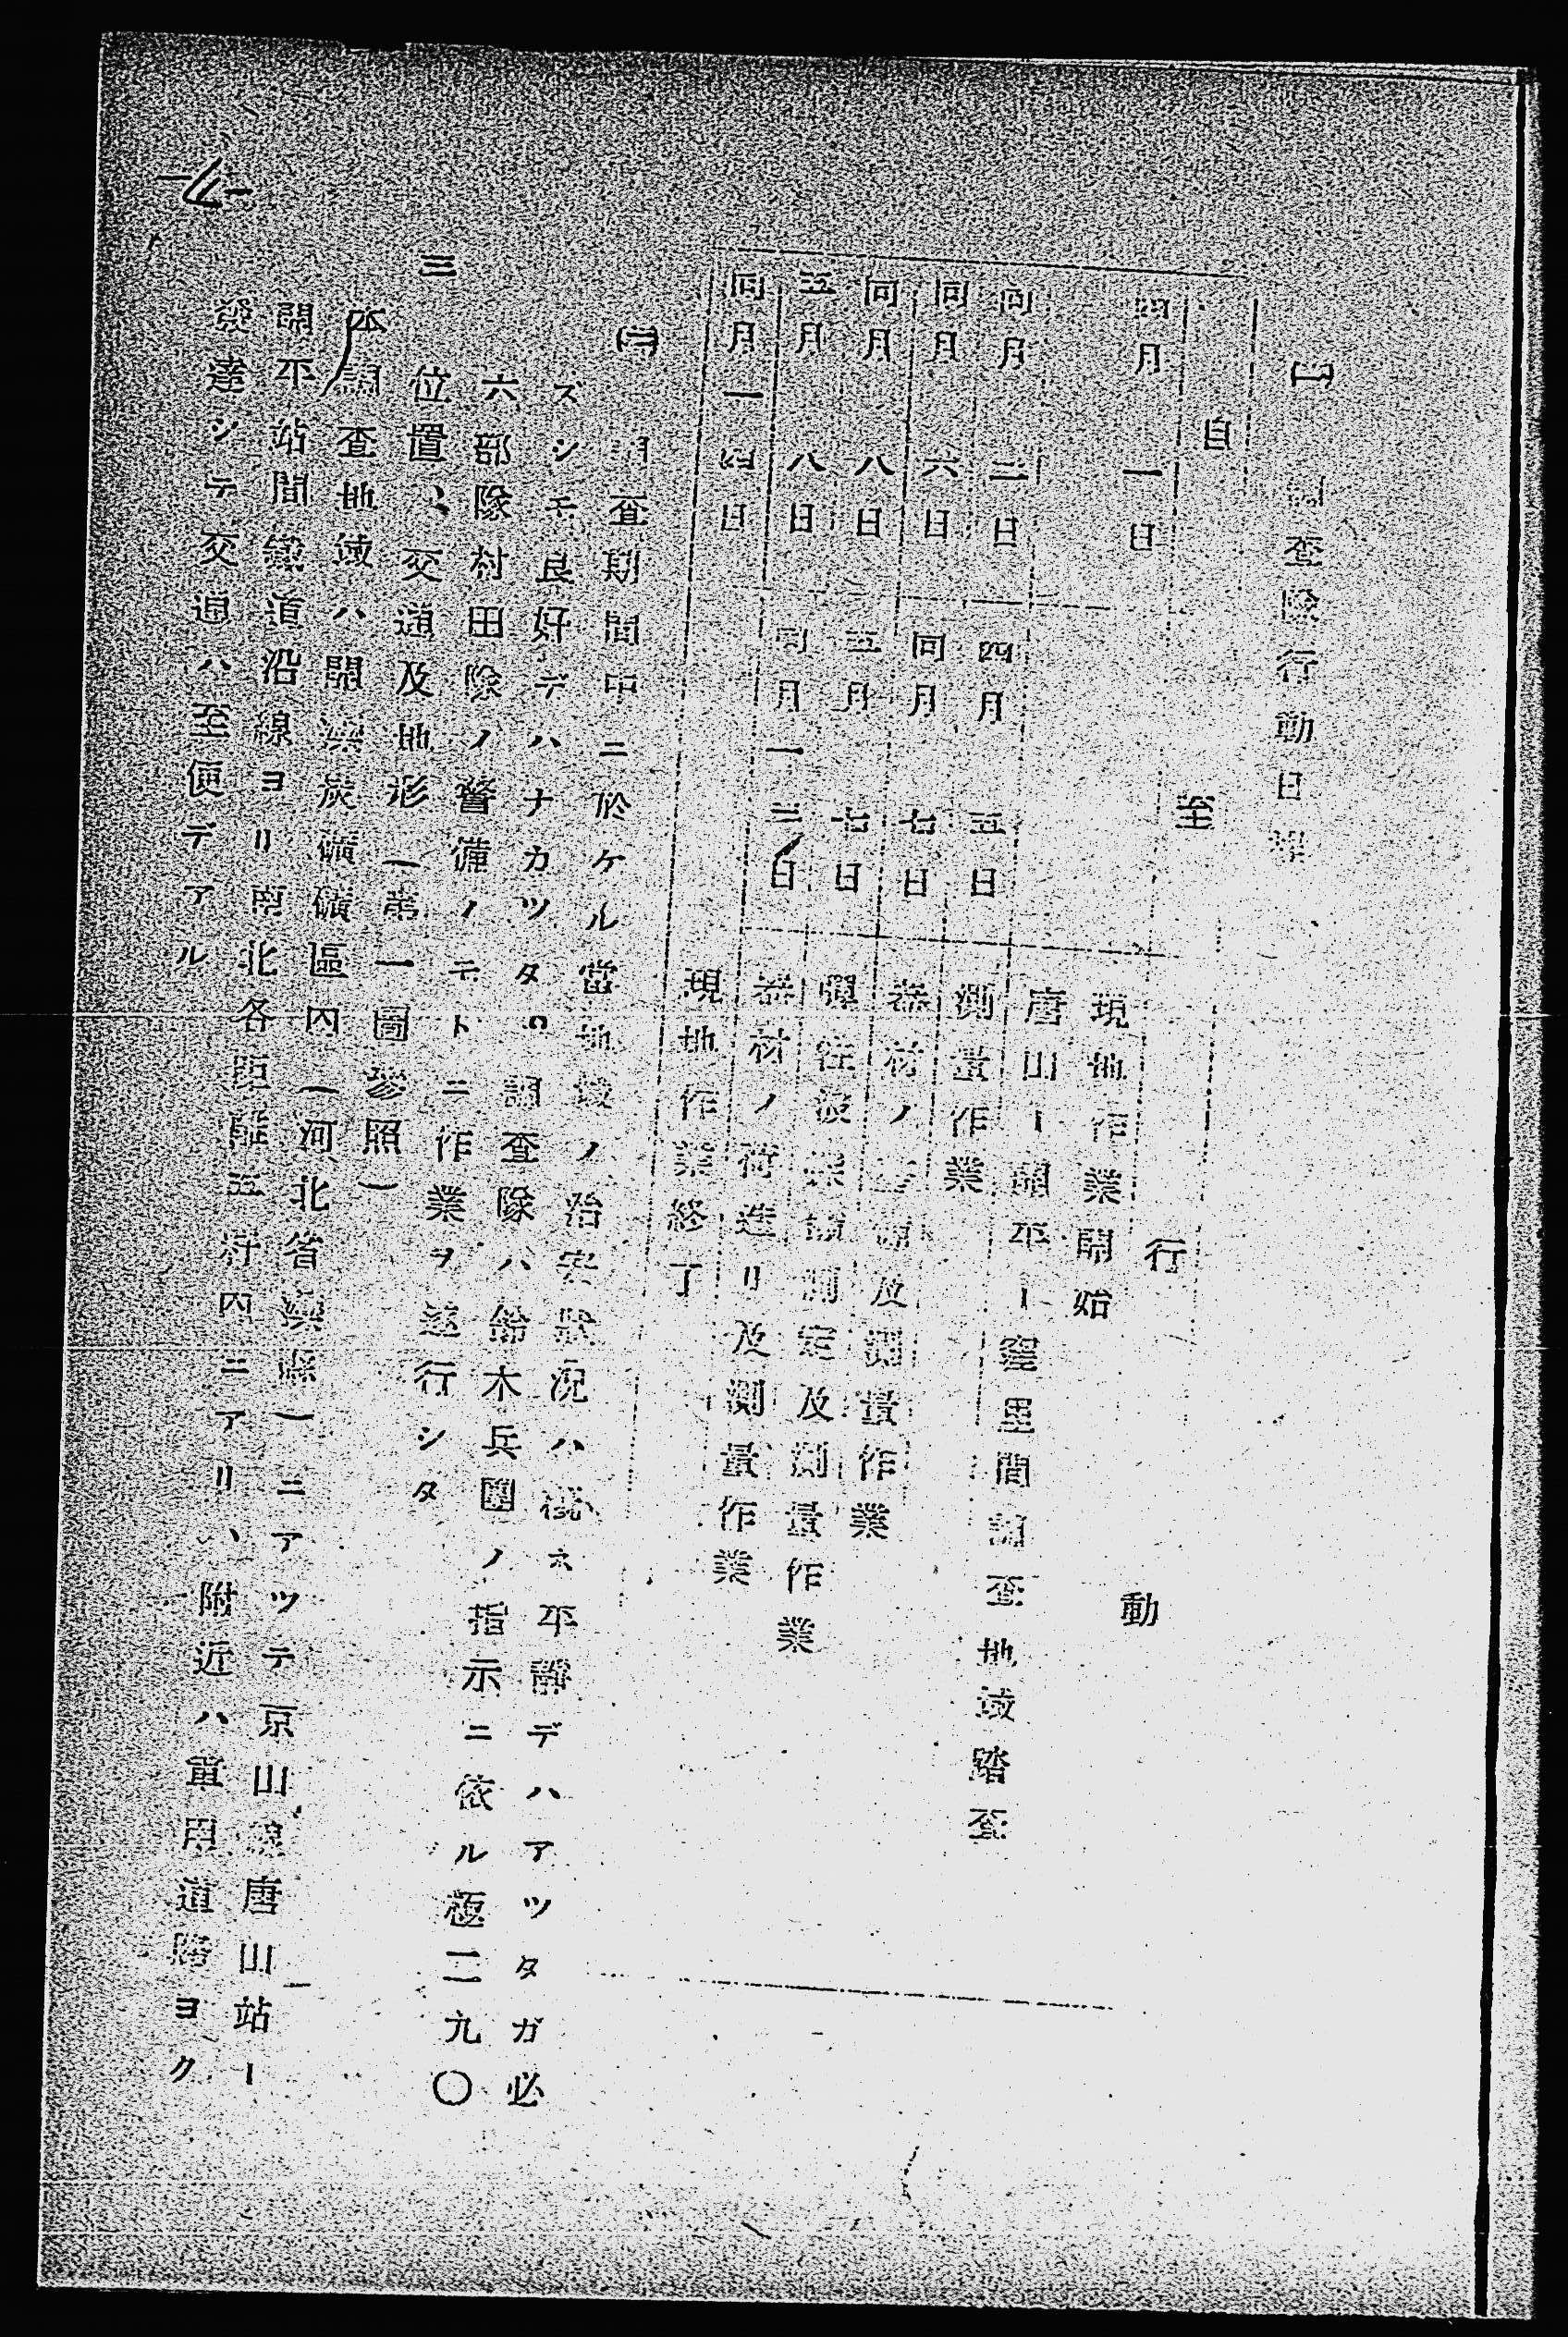 調査隊行動日程
自 至 行動
四月一日 現地作業開始
唐山ー開平ー窪里間調査地域踏査
同月三日 四月五日 測量作業
同月六日 同月七日 器材ノ及測量作業
同月八日 五月七日 彈性波測定及測量作業
五月八日 同月一三日 器材ノ荷造リ及測量作業
同月一四日 現地作業終了
(二) 調査期間中ニ於ケル當地域ノ治安狀況ハ概ネ平靜デハアツタガ必
ズシモ良好デハナカツタ 調査隊ハ鈴木兵團ノ指示ニ依ル極二九〇
六部隊村田隊ノ警備ノモトニ作業ヲ遂行シタ
三 位置、交通及地形(第一圖參照)
本調査地域ハ開灤炭礦礦區內(河北省灤縣)ニアツテ京山線唐山站ー
開平站間鐵道沿線ヨリ南北各距離五粁內ニアリ、附近ハ重用道路ヨク
發達シテ交通ハ至便デアル